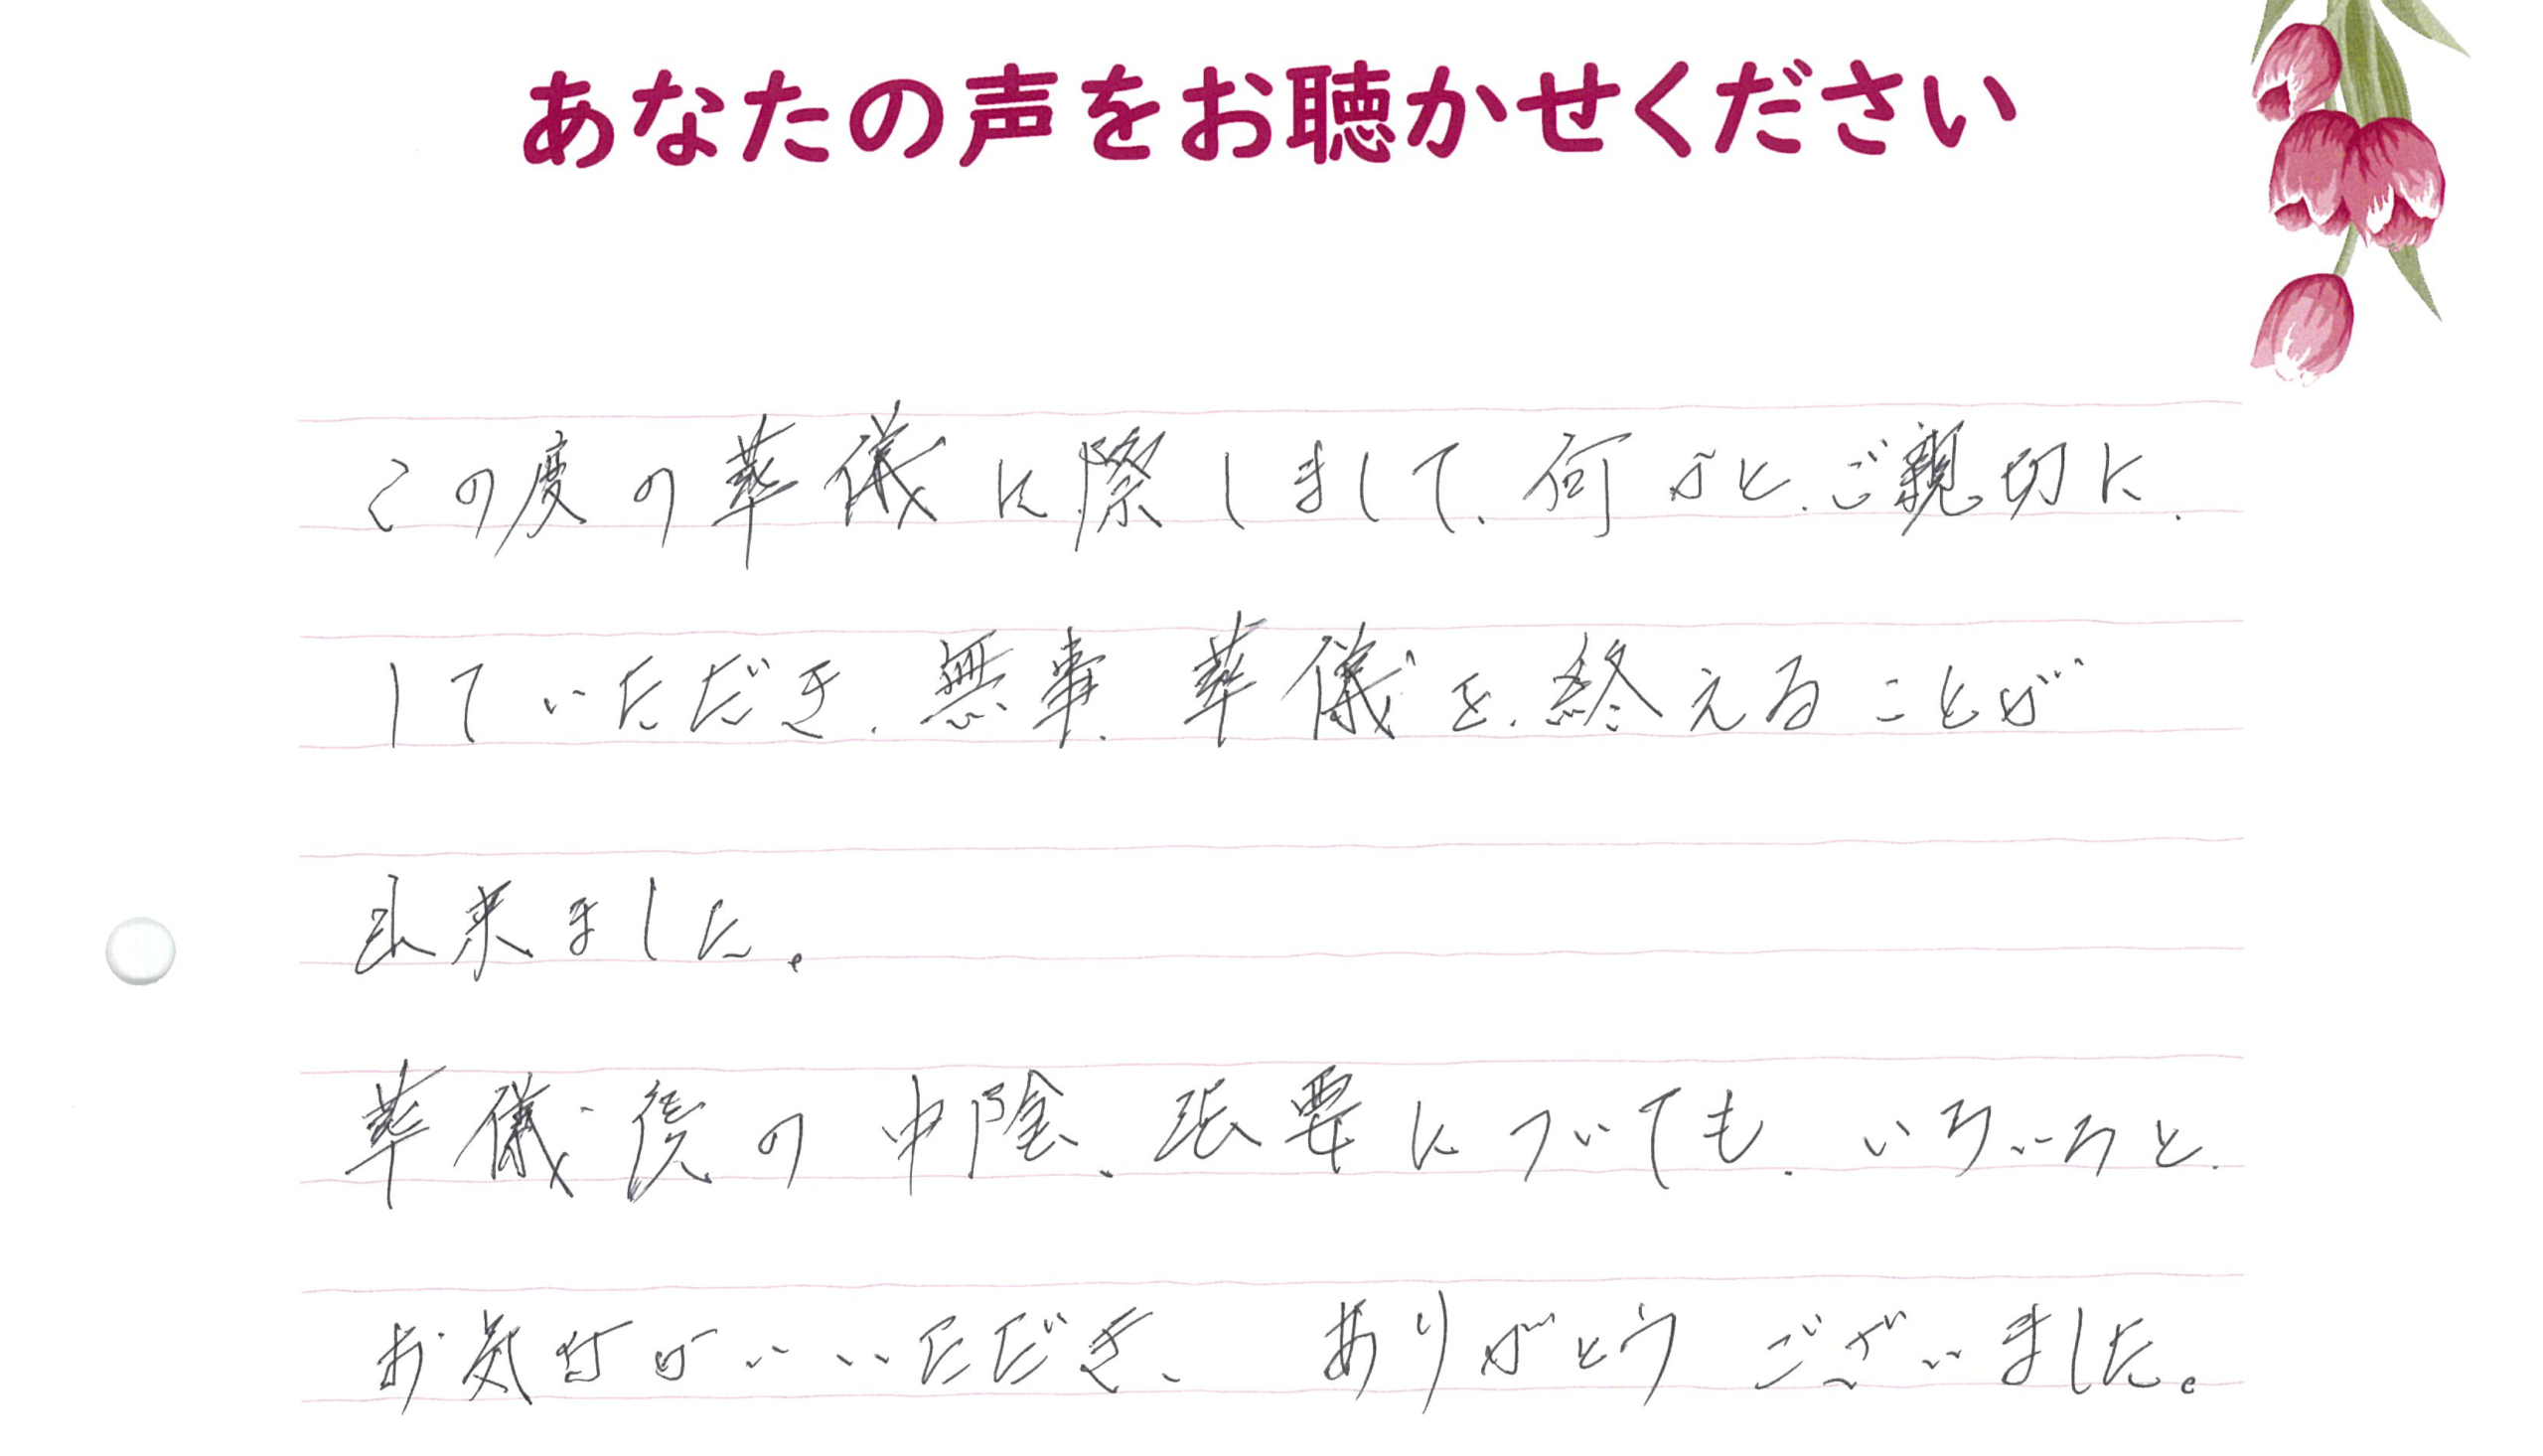 あなたの声をお聴かせください
この度の葬儀に際しまして、何かと、ご親切に、
していただき、無事、葬儀を、終えることが
出来ました。
葬儀後の中陰、法要についても、いろいろと、
お気付かいいただき、ありがとうございました。